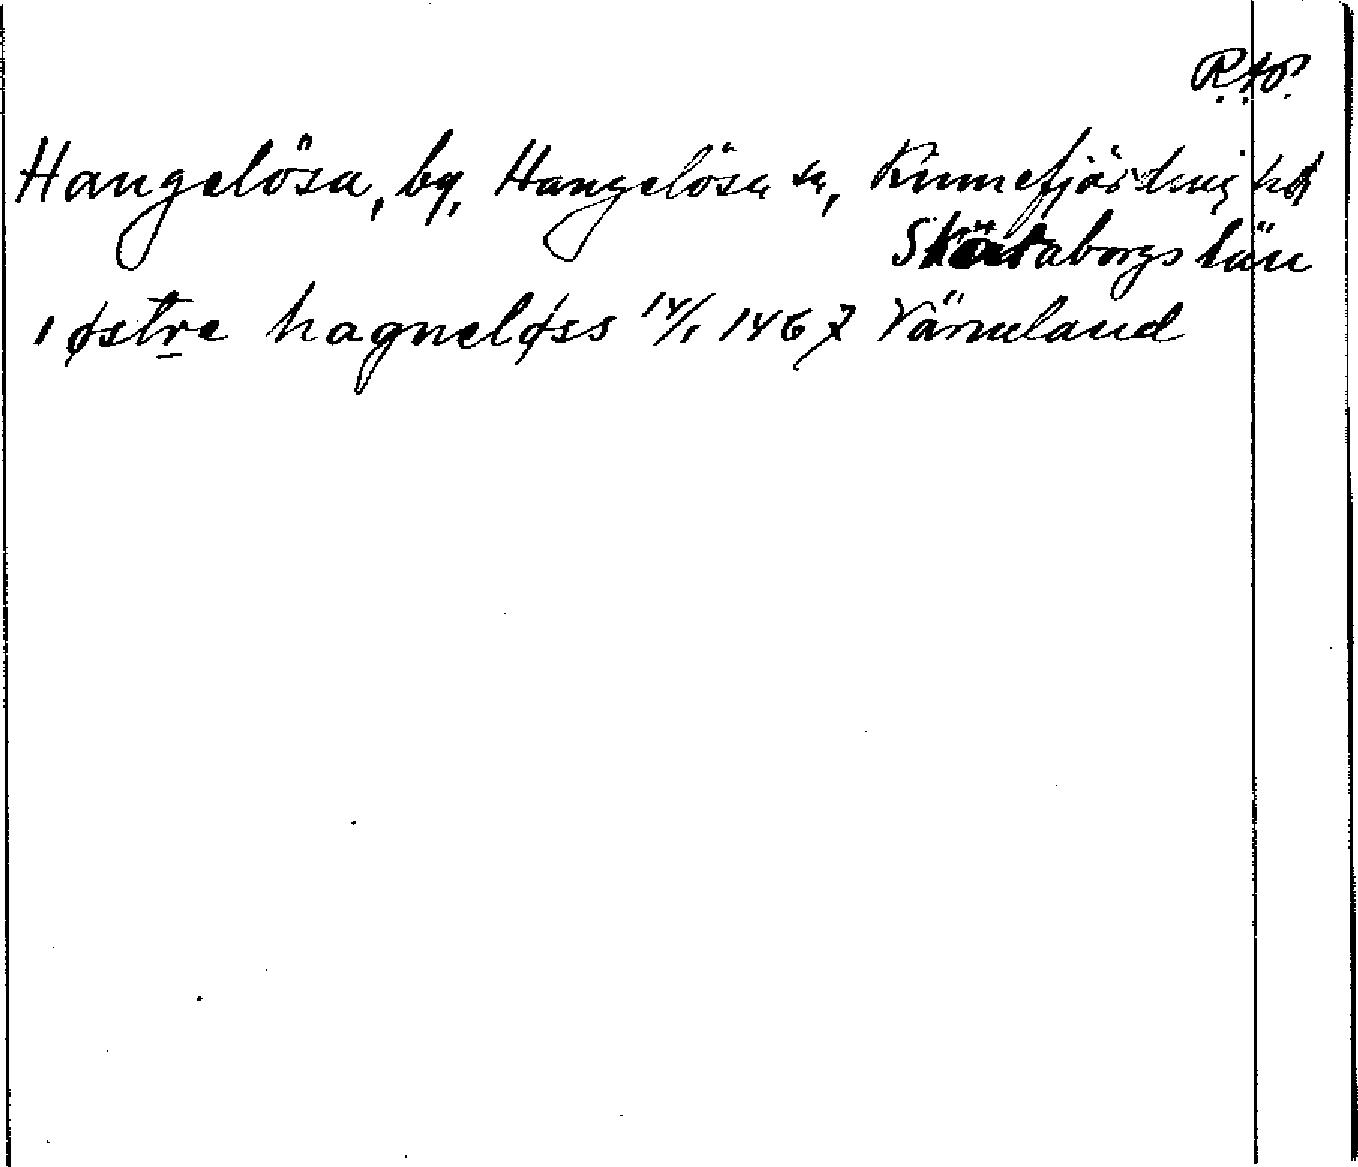 Hangelösa, by, Hangelösa sn, Kinnefjärdings hd
Skaraborgs län
i østre hagneløss 14/1 1467 Värmeland